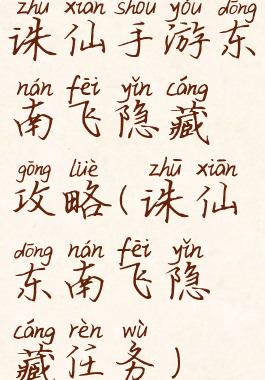 zhū xiān shǒu yóu dōng
诛仙手游东
nán fēi yǐn cáng
南飞隐藏
gōng lüè zhū xiān
攻略(诛仙
dōng nán fēi yǐn
东南飞隐
cáng rèn wù
藏任务)